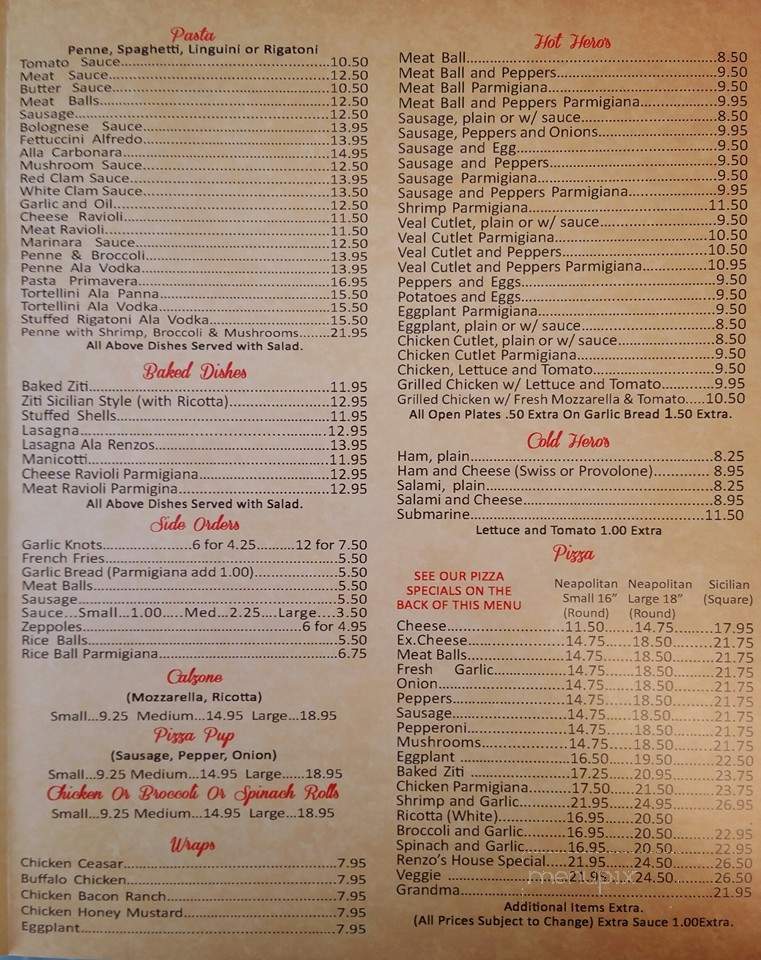 Pasta
Penne, Spaghetti, Linguini or Rigatoni
Tomato Sauce...10.50
Meat Sauce...12.50
Butter Sauce...10.50
Meat Balls...12.50
Sausage...12.50
Bolognese Sauce...13.95
Fettuccini Alfredo...13.95
Alla Carbonara...14.95
Mushroom Sauce...12.50
Red Clam Sauce...13.95
White Clam Sauce...13.50
Garlic and Oil...12.50
Cheese Ravioli...11.50
Meat Ravioli...11.50
Marinara Sauce...12.50
Penne & Broccoli...13.95
Penne Ala Vodka...13.95
Pasta Primavera...16.95
Tortellini Ala Panna...15.50
Tortellini Ala Vodka...15.50
Stuffed Rigatoni Ala Vodka...15.50
Penne with Shrimp, Broccoli & Mushrooms...21.95
All Above Dishes Served with Salad.
Baked Dishes
Baked Ziti...11.95
Ziti Sicilian Style (with Ricotta)...12.95
Stuffed Shells...11.95
Lasagna...12.95
Lasagna Ala Renzos...13.95
Manicotti...11.95
Cheese Ravioli Parmigiana...12.95
Meat Ravioli Parmigina...12.95
All Above Dishes Served with Salad.
Side Orders
Garlic Knots...6 for 4.25...12 for 7.50
French Fries...5.50
Garlic Bread (Parmigiana add 1.00)...5.50
Meat Balls...5.50
Sausage...5.50
Sauce...Small...1.00...Med...2.25...Large...3.50
Zeppoles...6 for 4.95
Rice Balls...5.50
Rice Ball Parmigiana...6.75
Calzone
(Mozzarella, Ricotta)
Small...9.25 Medium...14.95 Large...18.95
Pizza Pup
(Sausage, Pepper, Onion)
Small...9.25 Medium...14.95 Large......18.95
Chicken Or Broccoli Or Spinach Rolls
Small...9.25 Medium...14.95 Large...18.95
Wraps
Chicken Ceasar...7.95
Buffalo Chicken...7.95
Chicken Bacon Ranch...7.95
Chicken Honey Mustard...7.95
Eggplant...7.95
Hot Hero's
Meat Ball...8.50
Meat Ball and Peppers...9.50
Meat Ball Parmigiana...9.50
Meat Ball and Peppers Parmigiana...9.95
Sausage, plain or w/ sauce...8.50
Sausage, Peppers and Onions...9.95
Sausage and Egg...9.50
Sausage and Peppers...9.50
Sausage Parmigiana...9.50
Sausage and Peppers Parmigiana...9.95
Shrimp Parmigiana...11.50
Veal Cutlet, plain or w/ sauce...9.50
Veal Cutlet Parmigiana...10.50
Veal Cutlet and Peppers...10.50
Veal Cutlet and Peppers Parmigiana...10.95
Peppers and Eggs...9.50
Potatoes and Eggs...9.50
Eggplant Parmigiana...9.50
Eggplant, plain or w/ sauce...8.50
Chicken Cutlet, plain or w/ sauce...8.50
Chicken Cutlet Parmigiana...9.50
Chicken, Lettuce and Tomato...9.50
Grilled Chicken w/ Lettuce and Tomato...9.95
Grilled Chicken w/ Fresh Mozzarella & Tomato...10.50
All Open Plates .50 Extra On Garlic Bread 1.50 Extra.
Cold Hero's
Ham, plain...8.25
Ham and Cheese (Swiss or Provolone)... 8.95
Salami, plain...8.25
Salami and Cheese...8.95
Submarine...11.50
Lettuce and Tomato 1.00 Extra
Pizza
SEE OUR PIZZA
SPECIALS ON THE
BACK OF THIS MENU
Neapolitan Neapolitan Sicilian
Small 16" Large 18" (Square)
(Round) (Round)
Cheese...11.50...14.75...17.95
Ex.Cheese...14.75...18.50...21.75
Meat Balls...14.75...18.50...21.75
Fresh Garlic...14.75...18.50...21.75
Onion...14.75...18.50...21.75
Peppers...14.75...18.50...21.75
Sausage...14.75...18.50...21.75
Pepperoni...14.75...18.50...21.75
Mushrooms...14.75...18.50...21.75
Eggplant ...16.50...19.50...22.50
Baked Ziti ...17.25...20.95...23.75
Chicken Parmigiana...17.50...21.50...23.75
Shrimp and Garlic...21.95...24.95...26.95
Ricotta (White)...16.95...20.50
Broccoli and Garlic...16.95...20.50...22.95
Spinach and Garlic...16.95...20.50...22.95
Renzo's House Special...21.95...24.50...26.50
Veggie ...21.95...24.50...26.50
Grandma...21.95
menupix
Additional Items Extra.
(All Prices Subject to Change) Extra Sauce 1.00Extra.